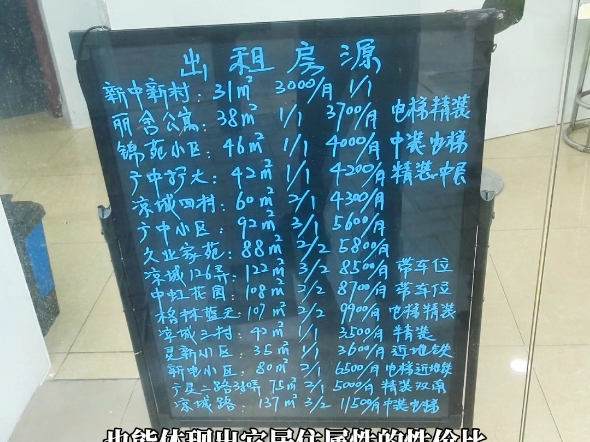 出租房源
新中新村: 31m² 3000/月 1/1
丽舍公寓: 38m² 1/1 3700/月 电梯精装
锦苑小区: 46m² 1/1 4000/月 中装电梯
广中新大: 42m² 1/1 4200/月 精装中层
凉城四村: 60m² 2/1 4300/月
广中小区: 92m² 3/1 5600/月
久业家苑: 88m² 2/2 5800/月
凉城126弄: 122m² 3/2 8500/月 带车位
中虹花园: 108m² 2/2 8700/月 带车位
格林蓝天: 107m² 2/2 9900/月 电梯精装
凉城三村: 42m² 1/1 3500/月 精装
复新小区: 35m² 1/1 3600/月 近地铁
新电小区: 80m² 2/1 6500/月 电梯近地铁
广灵二路 弄 75m² 2/1 5000/月 精装双南
凉城路: 137m² 3/2 11500/月 中装电梯
也能体现出它居住属性的性价比